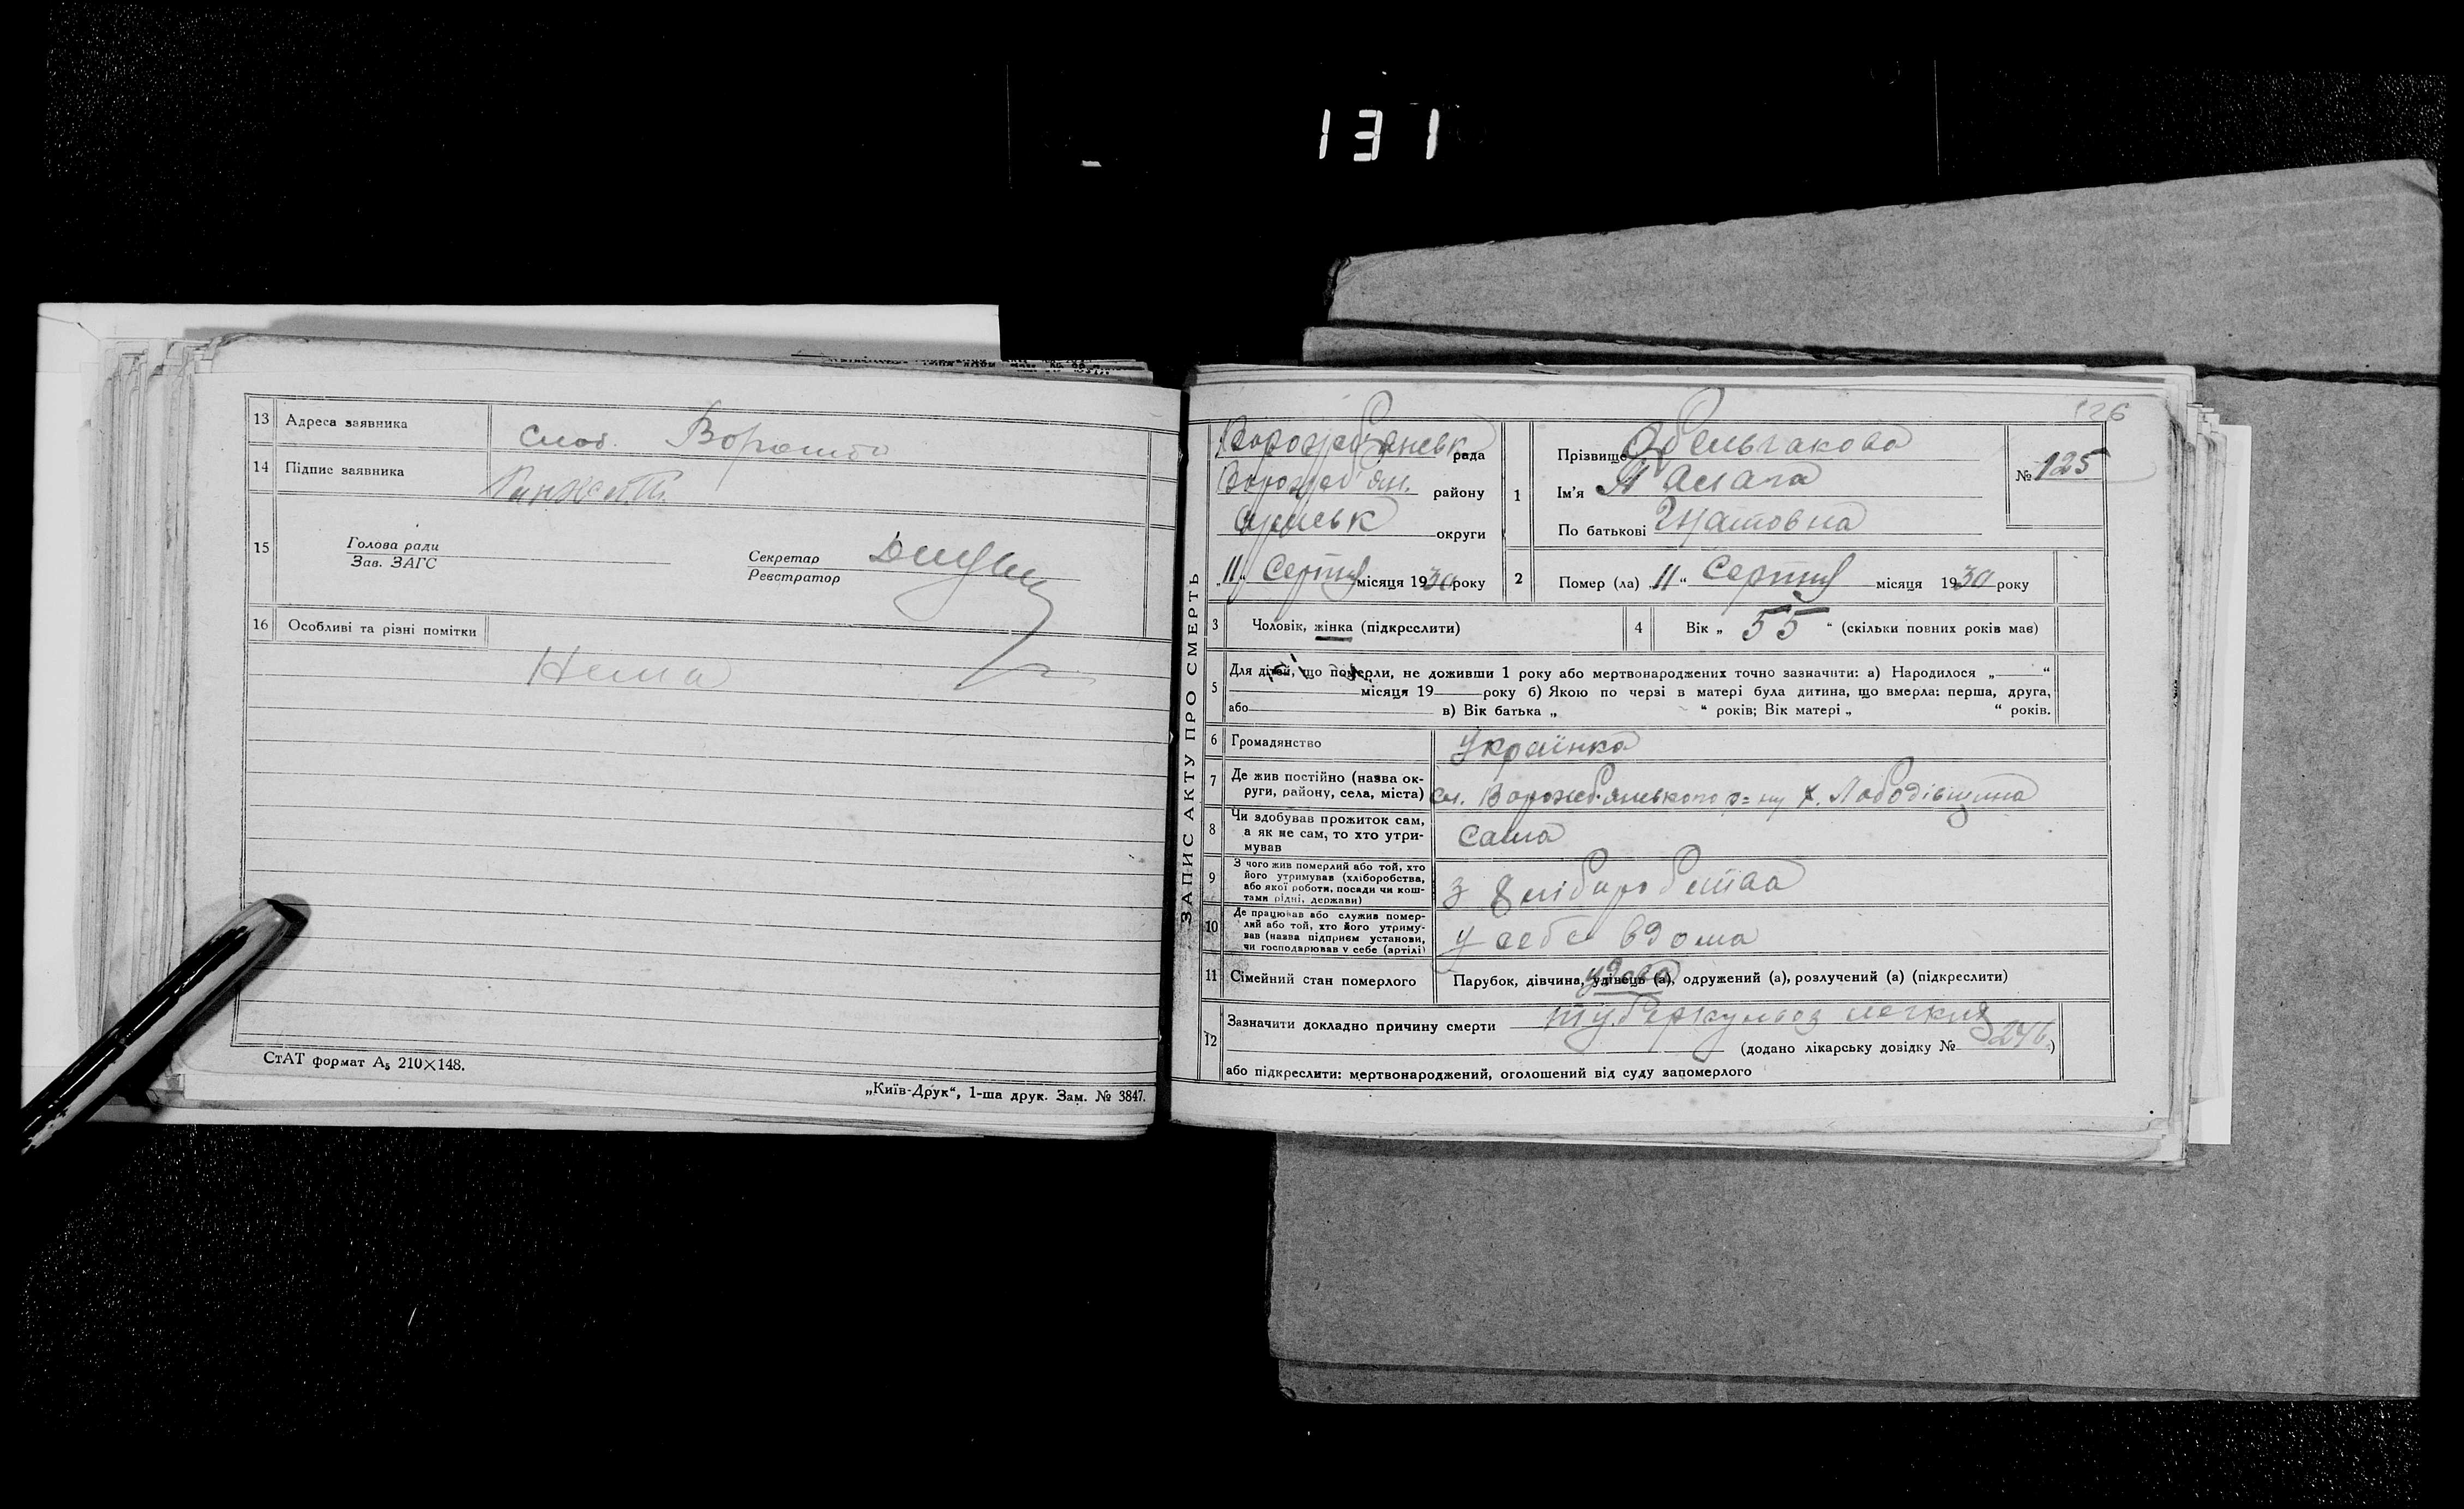 131
13 Адреса заявника слоб. Ворожба
14 Підпис заявника
15 Голова ради
Зав. ЗАГС
Секретар
Реєстратор
16 Особливі та різні помітки
Нема
СтАТ формат А₅ 210×148.
„Київ-Друк“, 1-ша друк. Зам. № 3847.
126
ЗАПИС АКТУ ПРО СМЕРТЬ
Ворожбянськ рада
Ворожб'ян. району
Сумськ округи
„11“ Серпня місяця 1930 року
1 Прізвище
Ім'я
По батькові Гнатовна
№ 125
2 Помер (ла) „11“ Серпня місяця 1930 року
3 Чоловік, жінка (підкреслити)
4 Вік „55“ (скільки повних років має)
5 Для дітей, що померли, не доживши 1 року або мертвонароджених точно зазначити: а) Народилося „ “
місяця 19 року б) Якою по черзі в матері була дитина, що вмерла: перша, друга,
або в) Вік батька „ “ років; Вік матері „ “ років.
6 Громадянство Українка
7 Де жив постійно (назва ок-
руги, району, села, міста) см. Ворожб.янського р-ну х. Лободівщина
8 Чи здобував прожиток сам,
а як не сам, то хто утри-
мував
сама
9 З чого жив померлий або той, хто
його утримував (хліборобства,
або якої роботи, посади чи кош-
тами рідні, держави)
з хліборобства
10 Де працював або служив помер-
лий або той, хто його утриму-
вав (назва підприєм установи,
чи господарював у себе (артілі)
у себе вдома
11 Сімейний стан померлого Парубок, дівчина, удівець (а), одружений (а), розлучений (а) (підкреслити)
удова
12 Зазначити докладно причину смерти туберкульоз легких
(додано лікарську довідку № 3246)
або підкреслити: мертвонароджений, оголошений від суду запомерлого